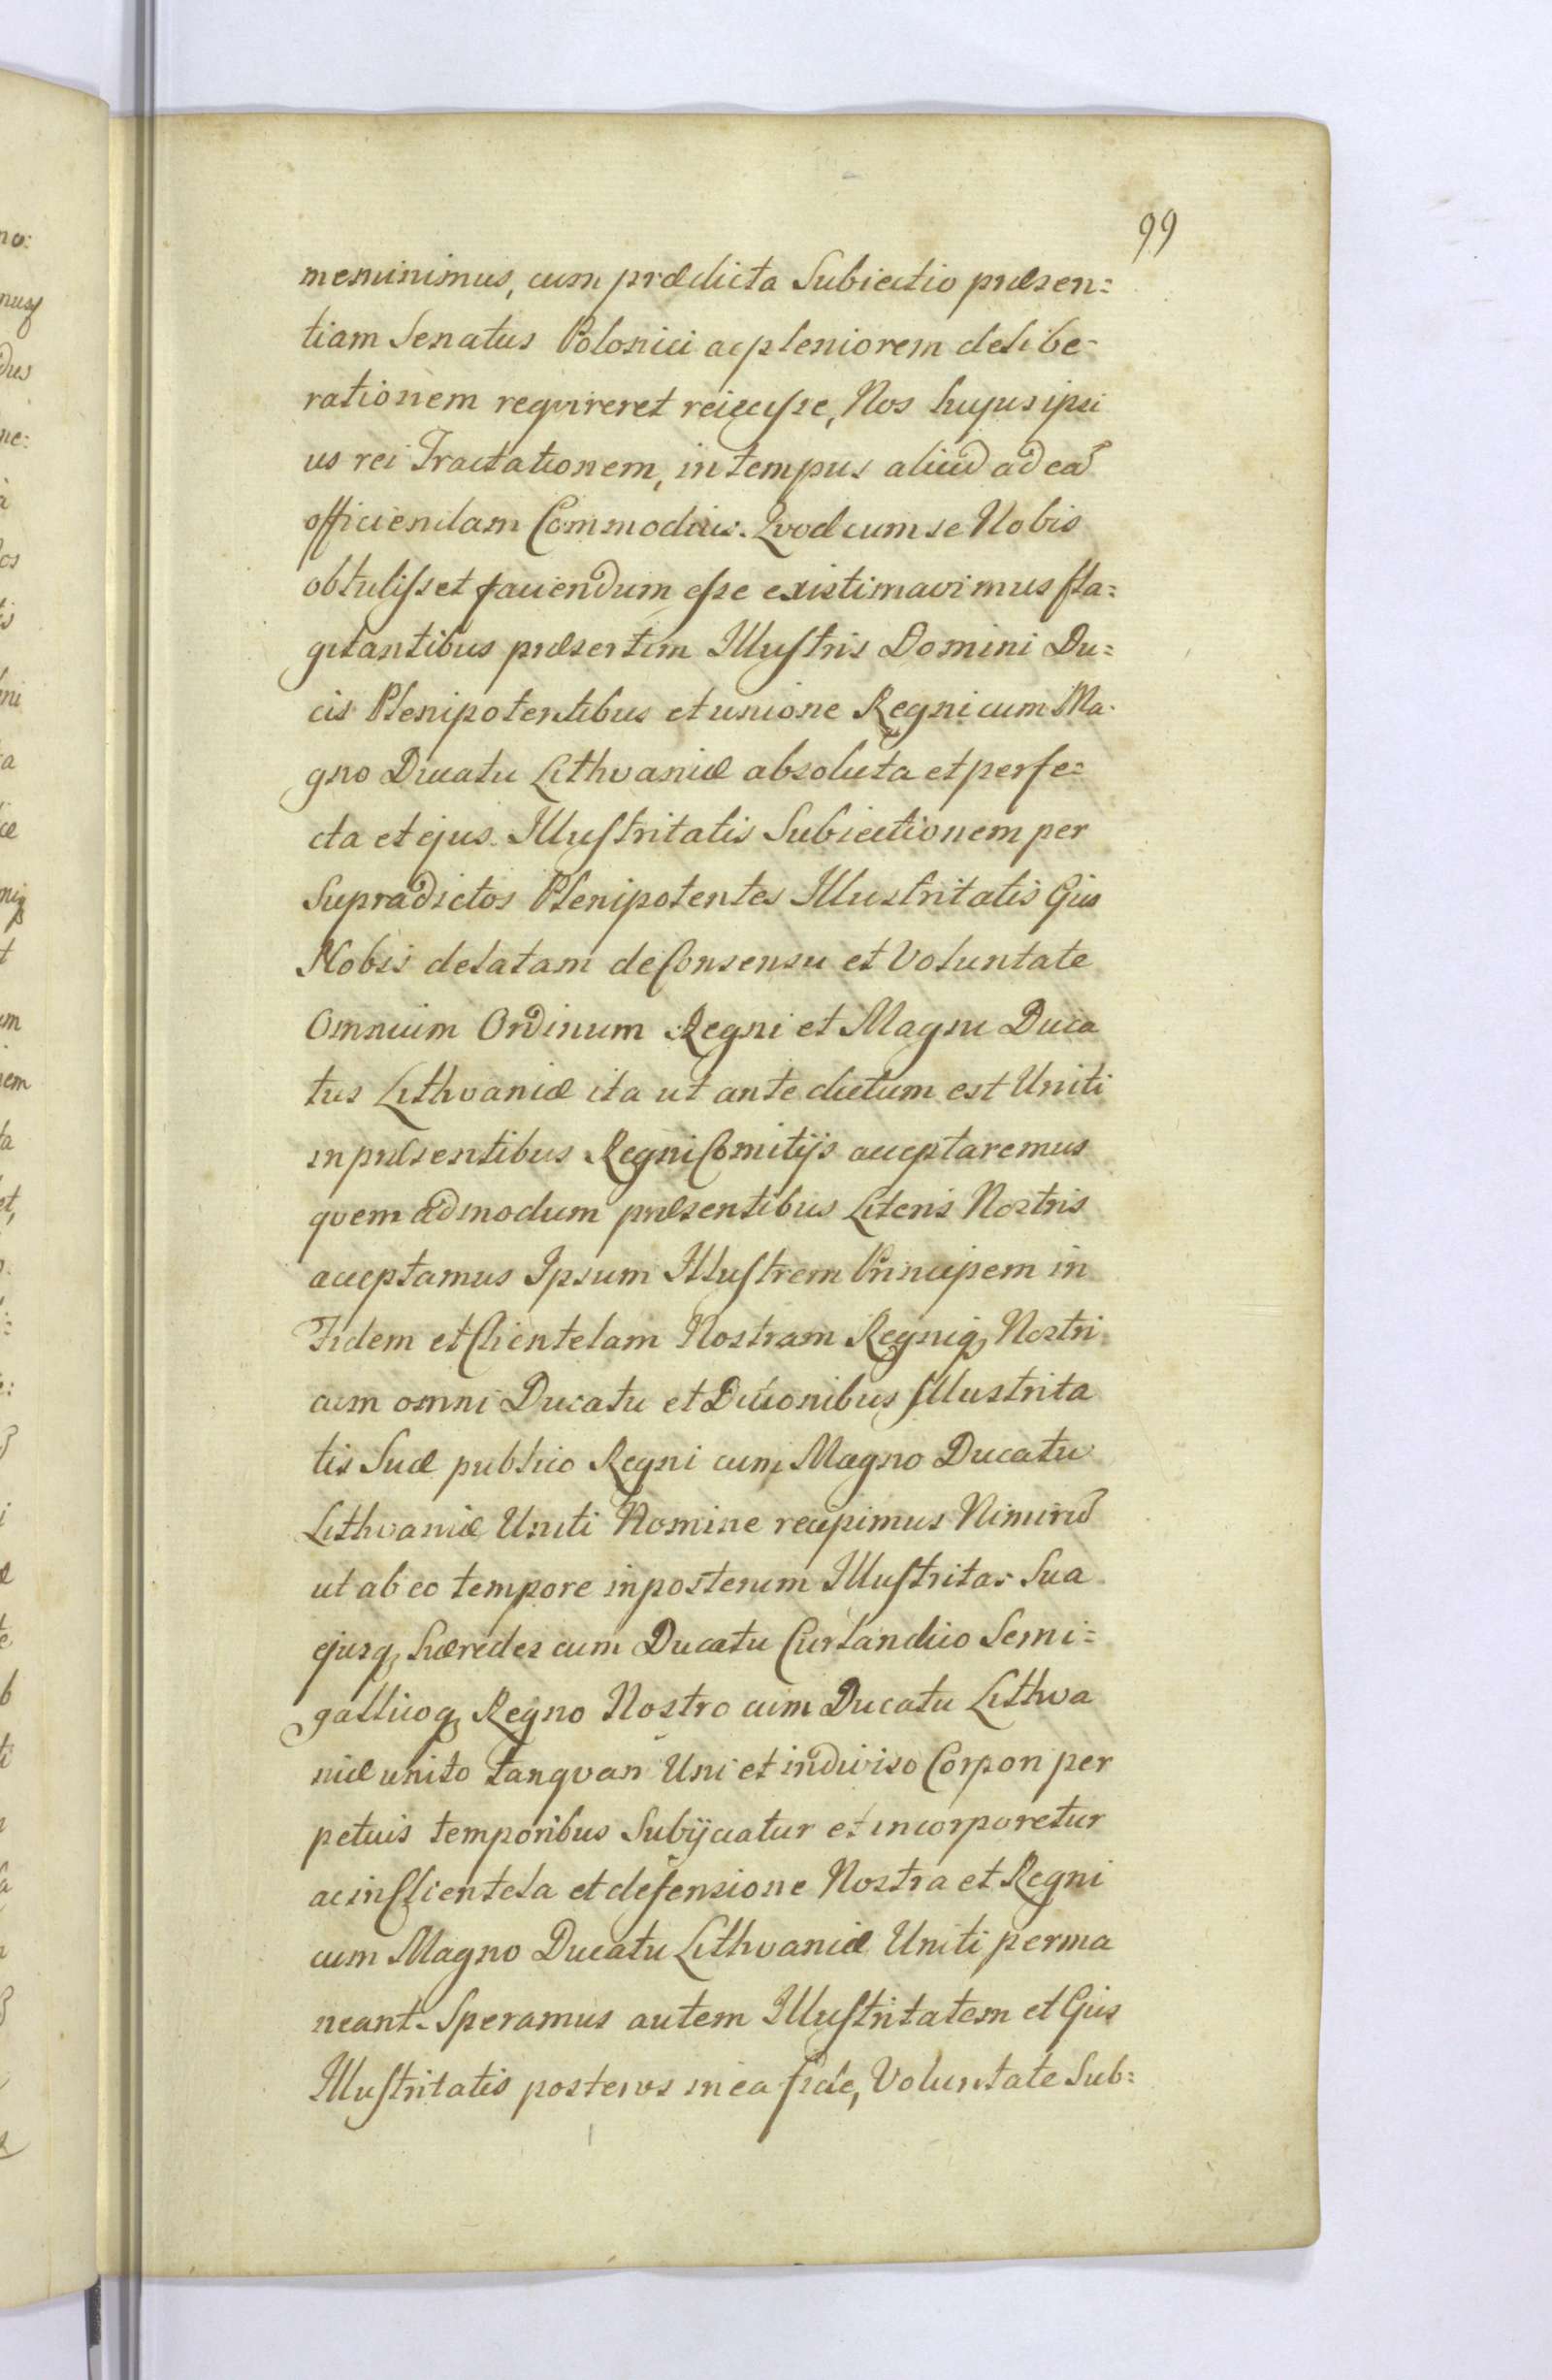 99
meminimus, cum prædicta Subiectio præsen=
tiam Senatus Polonici ac pleniorem delibe-
rationem reqvireret reiecisse, Nos hujus ipsi
us rei Tractationem, in tempus aliud ad eã
officiendam Commodius. Qvod cum se Nobis
obtulisset faciendum esse existimavimus fla=
gitantibus præsertim Illustris Domini Du=
cis Plenipotentibus et unione Regni cum Ma-
gno Ducatu Lithvaniæ absoluta et perfe=
cta et ejus Illustritatis Subiectionem per
Supradictos Plenipotentes Illustritatis Ejus
Nobis delatam de Consensu et Voluntate
Omnium Ordinum Regni et Magni Duca
tus Lithvaniæ ita ut ante dictum est Uniti
in præsentibus Regni Comitijs acceptaremus
qvemadmodum præsentibus Literis Nostris
acceptamus Ipsum Illustrem Principem in
Fidem et Clientelam Nostram Regniq, Nostri
cum omni Ducatu et Ditionibus Illustrita
tis Suæ publico Regni cum Magno Ducatu
Lithvaniæ Uniti Nomine recipimus Nimirũ
ut ab eo tempore in posterum Illustritas Sua
ejusq, hæredes cum Ducatu Curlandico Semi=
gallicoq, Regno Nostro cum Ducatu Lithva
niæ unito tanqvan Uni et indiviso Corpori per
petuis temporibus Subijciatur et incorporetur
ac in Clientela et defensione Nostra et Regni
cum Magno Ducatu Lithvaniæ Uniti perma
neant. Speramus autem Illustritatem et Ejus
Illustritatis posteros in ea fide, Voluntate Sub=